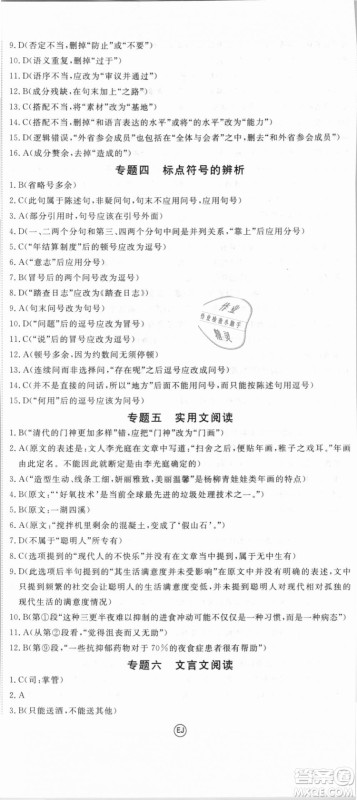 9. D(否定不当,删掉“防止”或“不”)
10. D(语义重复,删掉“过于”)
11. D(语序不当,应改为“审议并通过”)
12. B(成分残缺,在句末加上“之路”)
13. C(搭配不当,将“素材”改为“基地”)
14. C(搭配不当,将“和语言表达的水平”改为“和语言表达的能力”)
15. D(逻辑错误,“外省参会成员”也属于“参会成员”,删去“与外省参会成员”)
16. A(成分赘余,去掉“对于”)
专题四 标点符号的辨析
1. B(省略号多余)
2. C(此句属于陈述句,非疑问句,问号应改为句号)
3. A(问号应改为逗号)
4. D(一、二两个分句和三、四两个分句间为并列关系,“靠上”后应为分号)
5. C(“年结算制度”后的顿号应改为逗号)
6. A(“意志”后应用分号)
7. B(冒号后的两个句号均改为分号)
8. D(“踏查日志”应改为《踏查日志》)
9. A(句末问号改为句号)
10. D(“问题”后的逗号应改为冒号)
11. C(“说”后的冒号应改为逗号)
12. A(顿号多余,因为约数间无须顿号)
13. A(连续问而非选择问,所以应改为问号)
14. C(本句为陈述语气,所以“地方”后面的问号应按陈述句改为逗号)
15. D(“何用”后的逗号应改为问号)
专题五 实用文阅读
1. B(“清代的门神更加多样”错,应改为“门画”)
2. A(原文的表述是:文人李光庭在文章中写道:“扫舍之后,便贴年画,稚子之戏耳。”年画由此而得名。但是,不能就此断定是由李光庭定名)
3. A(“造型生动、线条工细、设色妍雅、美丽温馨”是杨柳青娃娃类年画的特点)
4. B(原文:“‘好氧技术’是我国目前最先进的垃圾处理方法”)
5. B(原文:一湖四溪)
6. A(原文:“搅拌机里剩余的混凝土,变成了‘假山石’。”)
7. D(不属于“聪明人”所专有)
8. C(选项提到的“现代人的不快乐”与全文无关,且在文章当中没有体现)
9. D(选项内容的意思与原文不符,文章只是提到频繁的社交会让聪明人的生活满意度变低,而现代生活对他们影响相对较小,并没有提到现代生活的满意度更高)
10. B(第①段“这种三更半夜难以抑制的进食冲动可能不仅仅是饥饿,而是一种病态”)
11. A(开始“减弱”,而不是“消失”)
12. B(第⑤段,“一些抗抑郁药物”对于 70%的夜食症患者是有效果的)
专题六 文言文阅读
1. C(司:掌管)
2. A
3. B(只能送酒,不能送其他)
EJ
作业
精灵
答案圈